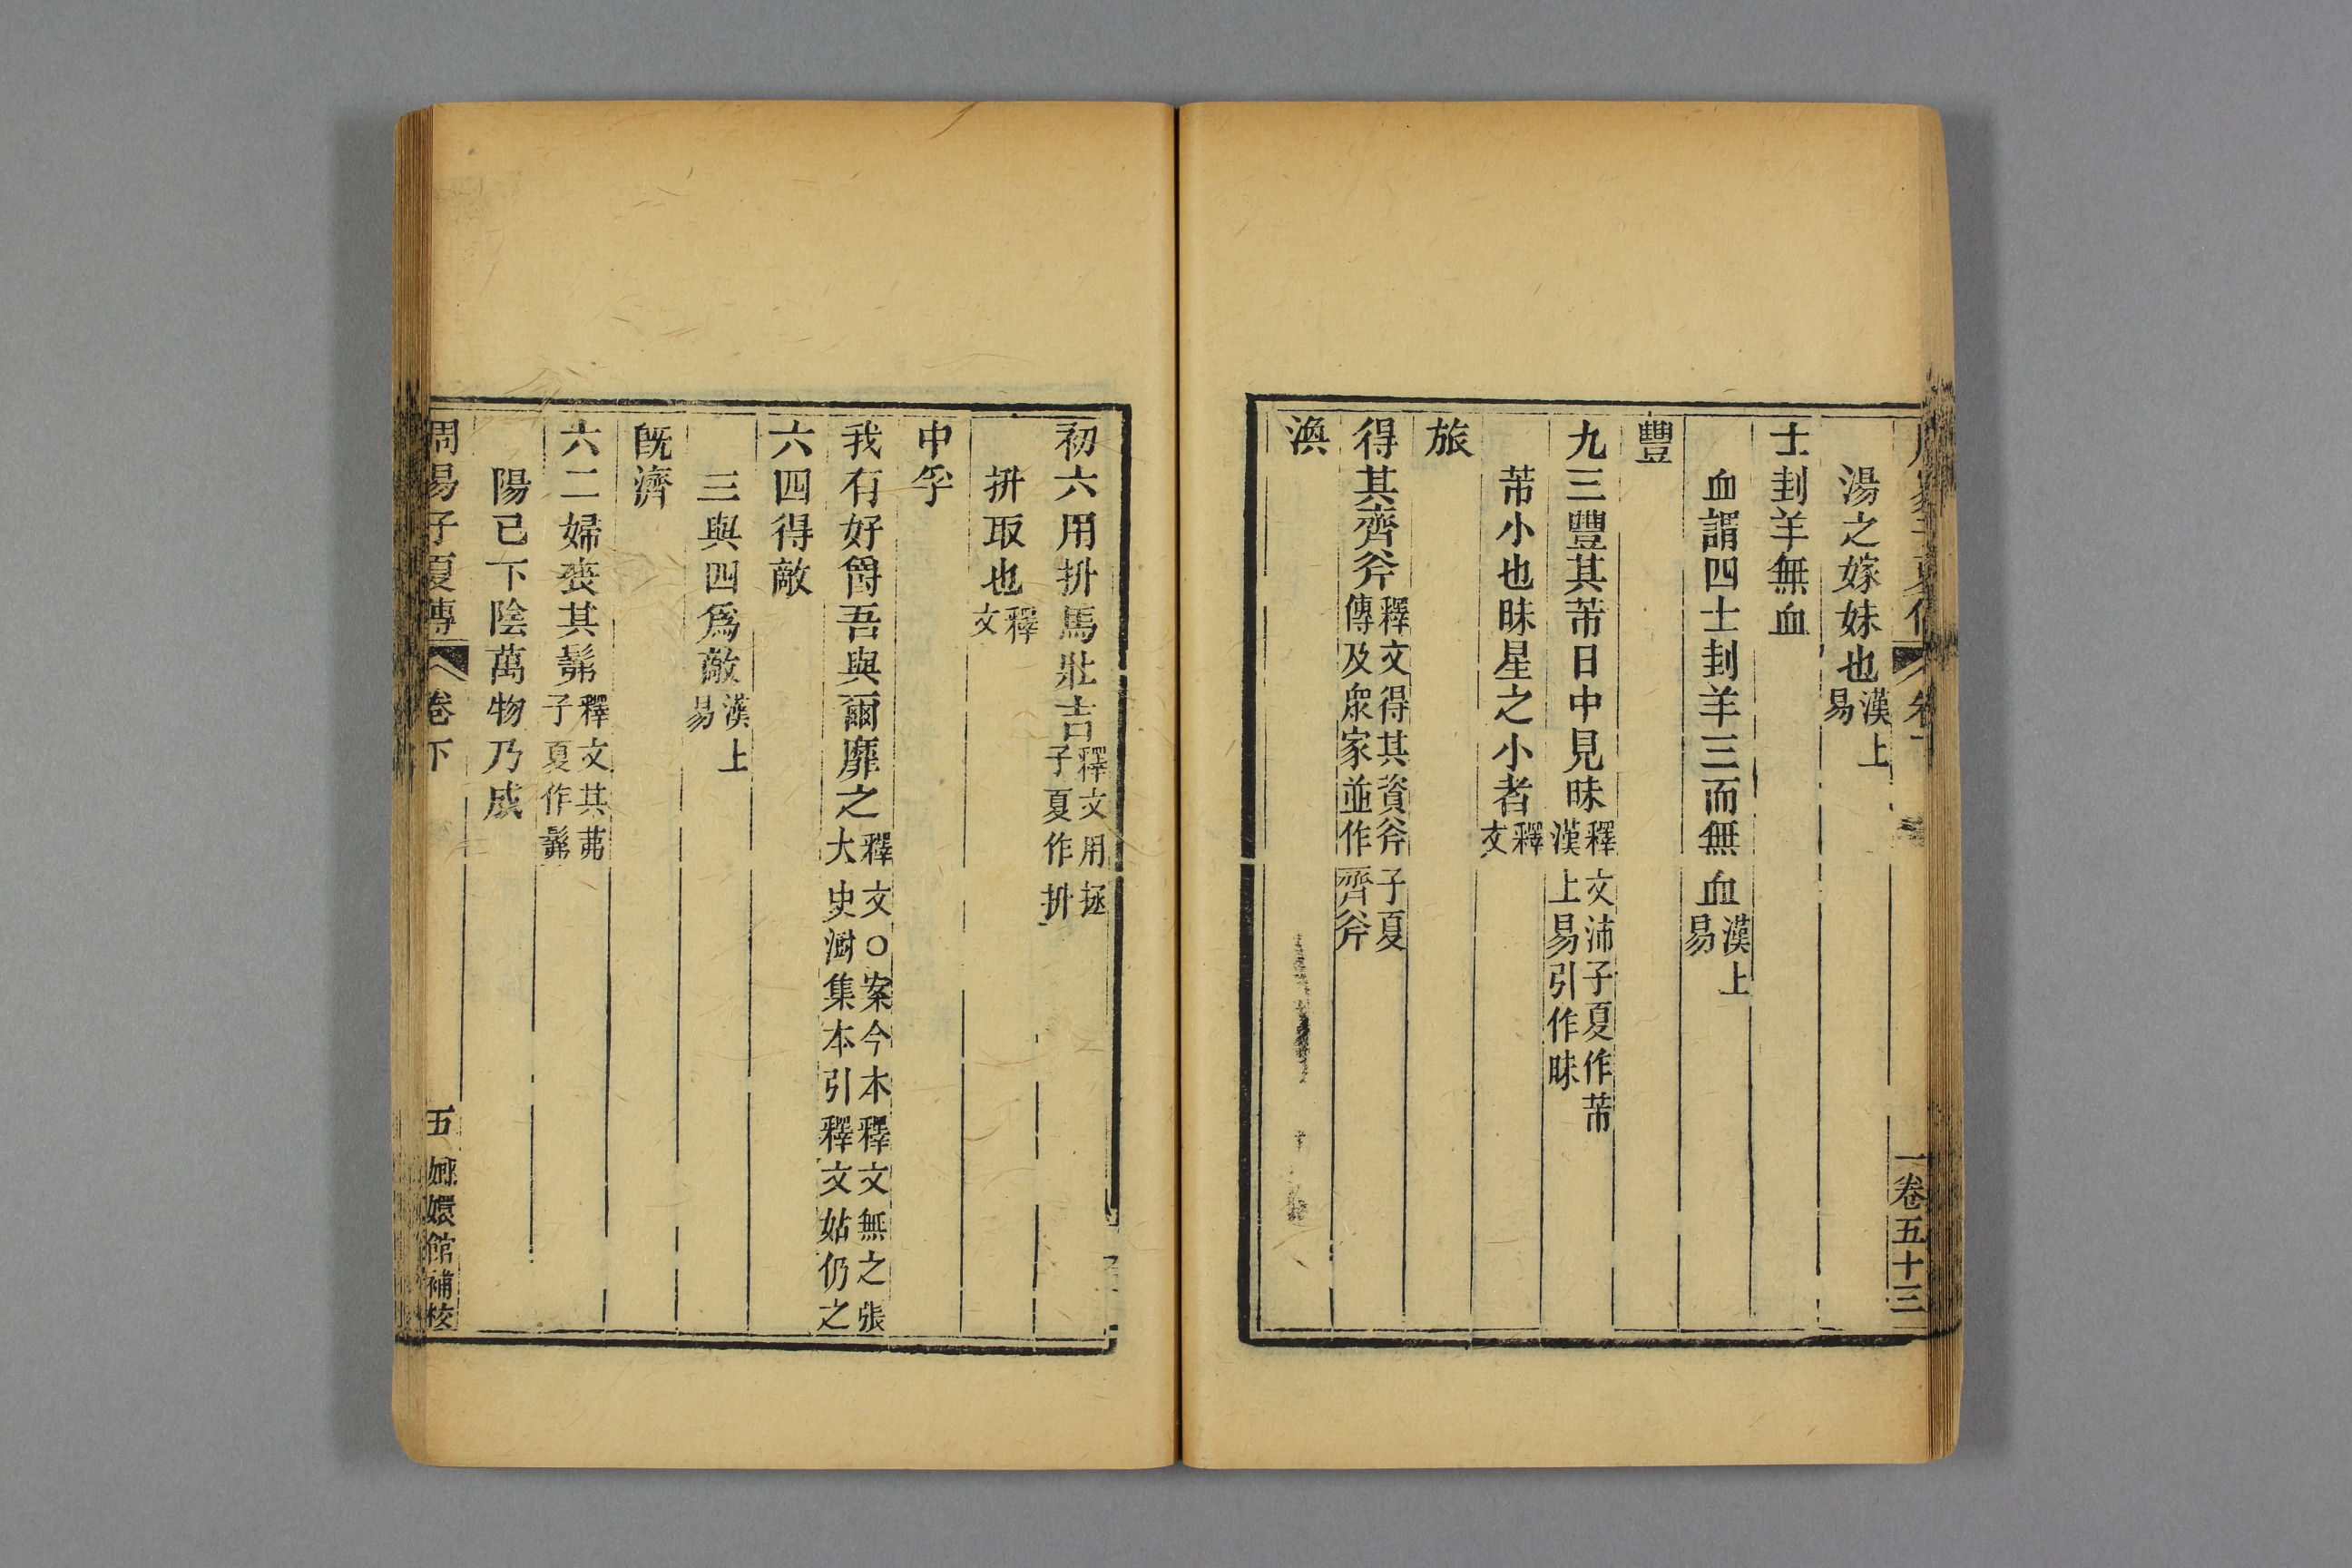 湯之嫁妹也漢上易
士刲羊無血
血謂四士刲羊三而無血漢上易
豐
九三豐其芾日中見昧釋文沛子夏作芾漢上易引作昧
芾小也昧星之小者釋文
旅
得其齊斧釋文得其資斧子夏傳及衆家並作齊斧
渙
一卷五十三
初六用抍馬壯吉釋文用拯子夏作抍
抍取也釋文
中孚
我有好爵吾與爾靡之釋文○案今本釋文無之張大史澍集本引釋文姑仍之
六四得敵
三與四爲敵漢上易
旣濟
六二婦喪其髴釋文其茀子夏作髴
陽已下陰萬物乃成
周易子夏傳 卷下 五 嫏嬛館補校